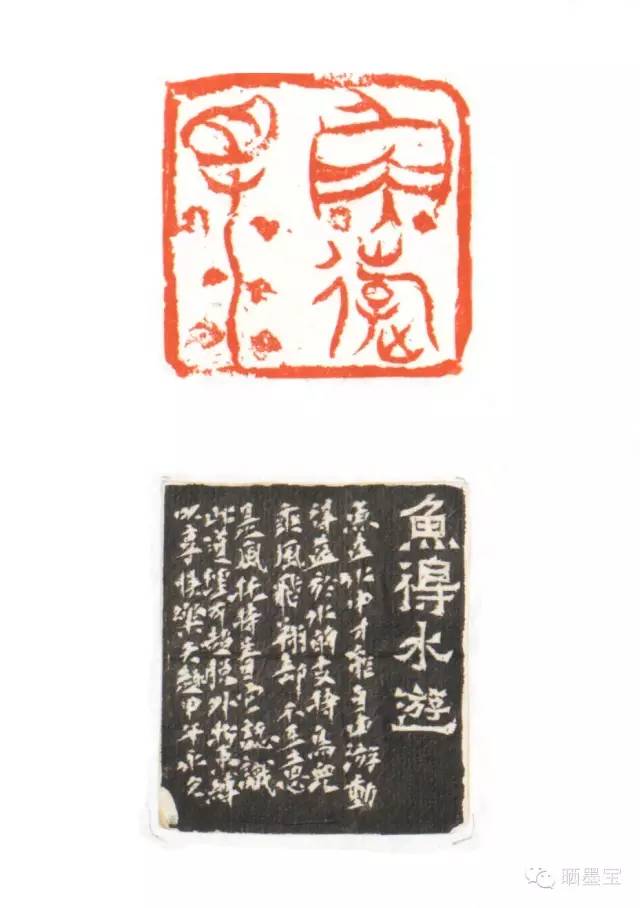 魚得水遊
魚在水中才能自由游動
得益於水的支持鳥兒
乘風飛翔卻不在意
是風依持着自己認識
此道理可超脫外物束縛
以享樂天趣甲午永久
晒墨宝